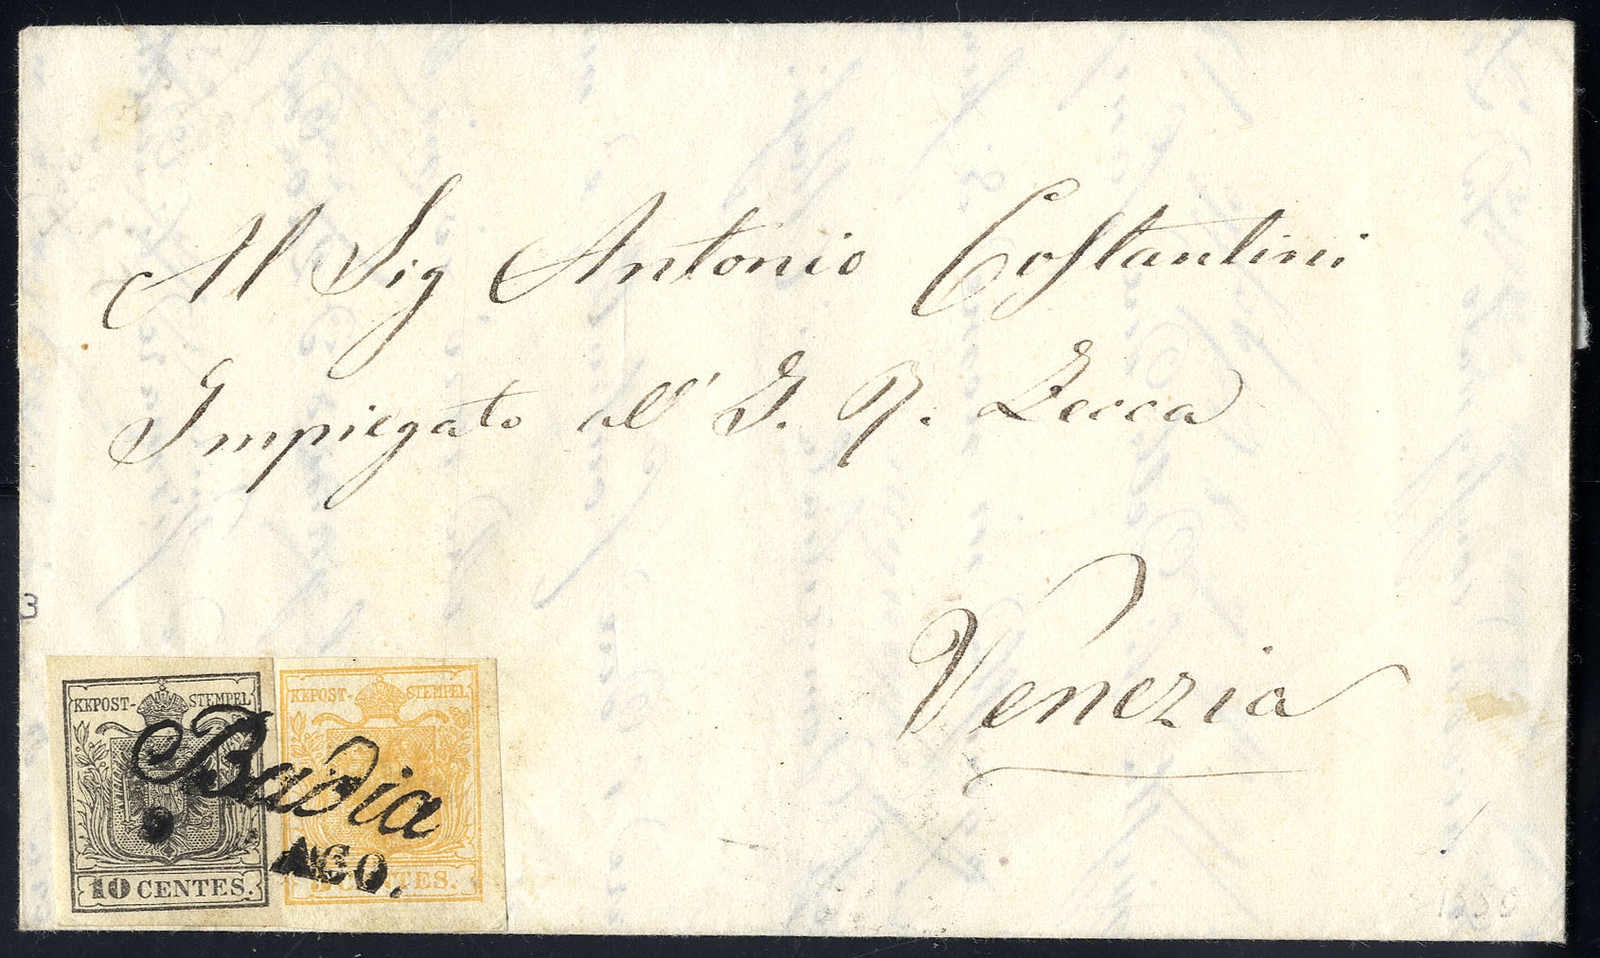 Al Sig Antonio Costantini
Impiegato all' I. R. Zecca
Venezia
3
KKPOST-STEMPEL KKPOST-STEMPEL
Badia
9 AGO.
10 CENTES. 5 CENTES.
1850